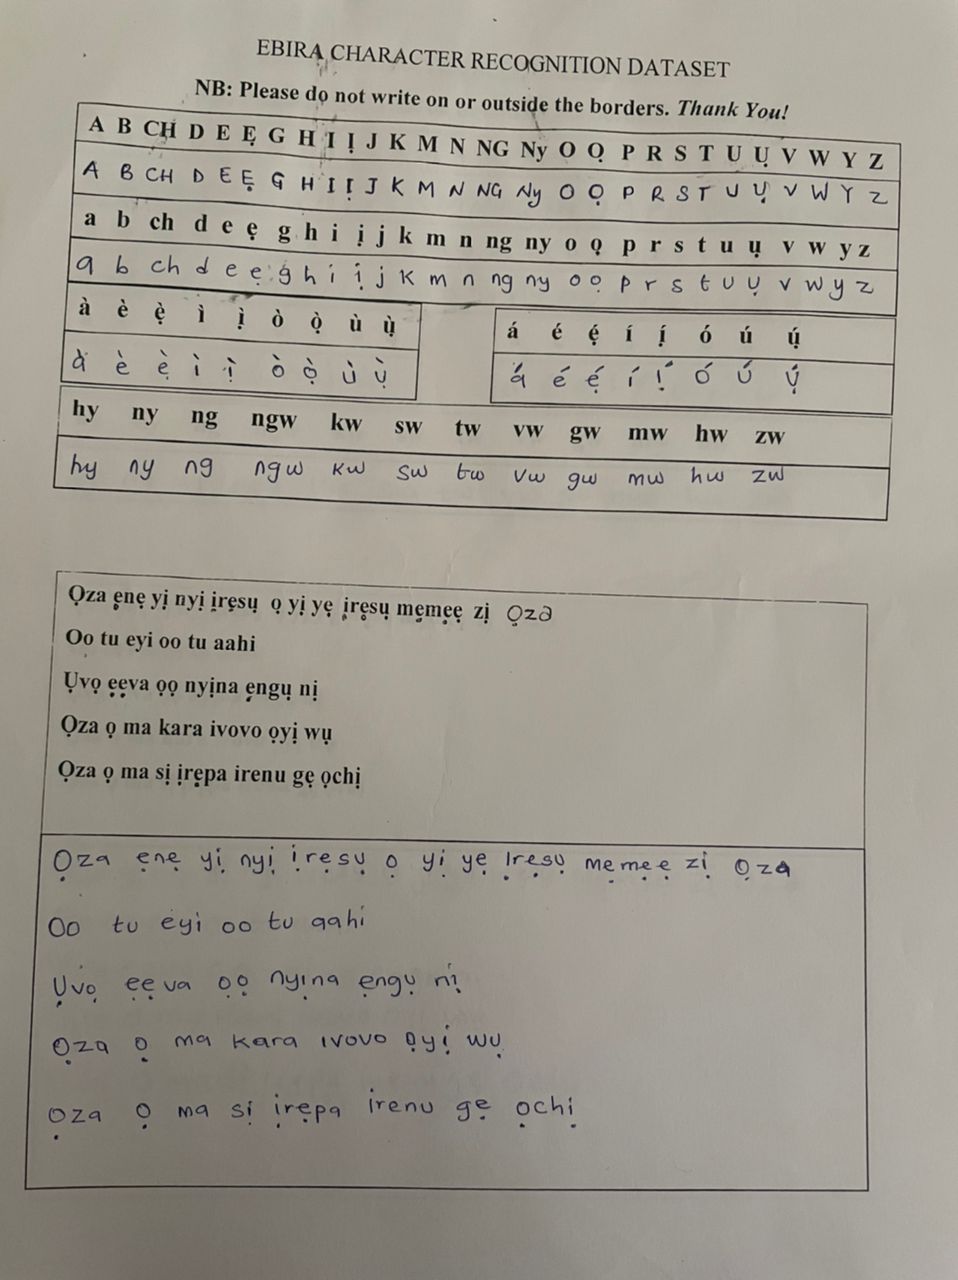 EBIRA CHARACTER RECOGNITION DATASET
NB: Please do not write on or outside the borders. Thank You!
A B CH D E Ẹ G H I Ị J K M N NG Ny O Ọ P R S T U Ụ V W Y Z
A B CH D E Ẹ G H I Ị J K M N NG Ny O Ọ P R S T U Ụ V W Y Z
a b ch d e ẹ g h i ị j k m n ng ny o ọ p r s t u ụ v w y z
a b ch d e ẹ g h i ị j k m n ng ny o ọ p r s t u ụ v w y z
à è ẹ̀ ì ị̀ ò ọ̀ ù ụ̀
à è ẹ̀ ì ị̀ ò ọ̀ ù ụ̀
á é ẹ́ í ị́ ó ú ụ́
á é ẹ́ í ị́ ó ú ụ́
hy ny ng ngw kw sw tw vw gw mw hw zw
hy ny ng ngw kw sw tw vw gw mw hw zw
Ọza ẹnẹ yị nyị ịrẹsụ ọ yị yẹ ịrẹsụ mẹmẹẹ zị Ọza
Oo tu eyi oo tu aahi
Ụvọ ẹẹva ọọ nyịna ẹngụ nị
Ọza ọ ma kara ivovo ọyị wụ
Ọza ọ ma sị ịrẹpa irenu gẹ ọchị
Ọza ẹnẹ yị nyị ịrẹsụ ọ yị yẹ ịrẹsụ mẹmẹẹ zị Ọza
Oo tu eyi oo tu aahi
Ụvọ ẹẹva ọọ nyịna ẹngụ nị
Ọza ọ ma kara ivovo ọyị wụ
Ọza ọ ma sị ịrẹpa irenu gẹ ọchị